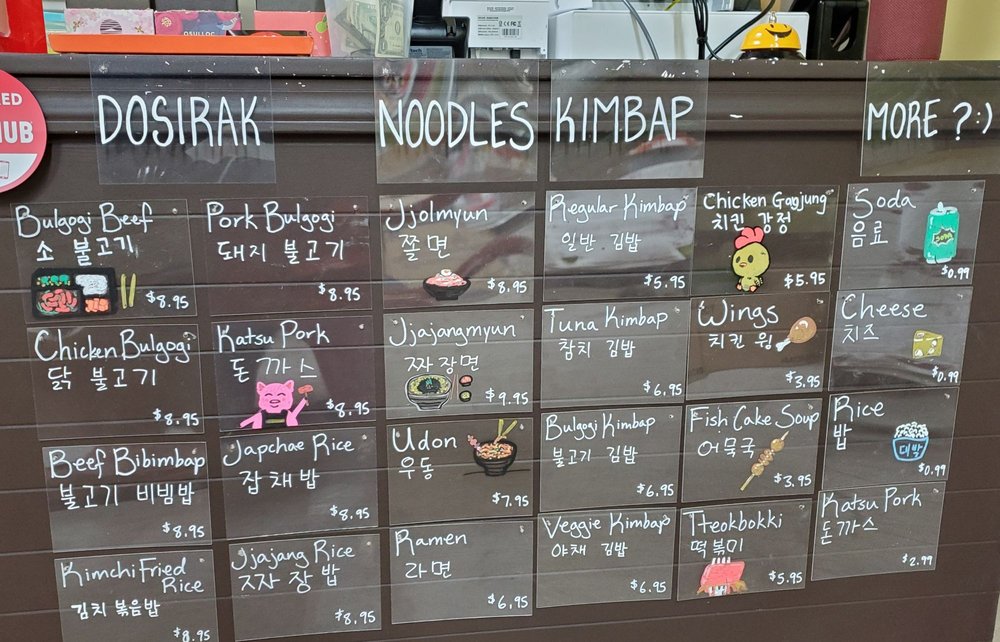 OSULLOC
RED
HUB
DOSIRAK
NOODLES
KIMBAP
MORE ? :)
Bulgogi Beef
소 불고기
$8.95
Pork Bulgogi
돼지 불고기
$8.95
Chicken Bulgogi
닭 불고기
$8.95
Katsu Pork
돈까스
$8.95
Beef Bibimbap
불고기 비빔밥
$8.95
Japchae Rice
잡채밥
$8.95
Kimchi Fried
Rice
김치 볶음밥
$8.95
Jjajang Rice
짜장밥
$8.95
Jjolmyun
쫄면
$8.95
Jjajangmyun
짜장면
$9.95
Udon
우동
$7.95
Ramen
라면
$6.95
Regular Kimbap
일반 김밥
$5.95
Tuna Kimbap
참치 김밥
$6.95
Bulgogi Kimbap
불고기 김밥
$6.95
Veggie Kimbap
야채 김밥
$6.95
Chicken Gagjung
치킨 강정
$5.95
Wings
치킨 윙
$3.95
Fish Cake Soup
어묵국
$3.95
Tteokbokki
떡볶이
$5.95
Soda
음료
$0.99
Cheese
치즈
$0.99
Rice
밥
대박
$0.99
Katsu Pork
돈까스
$2.99